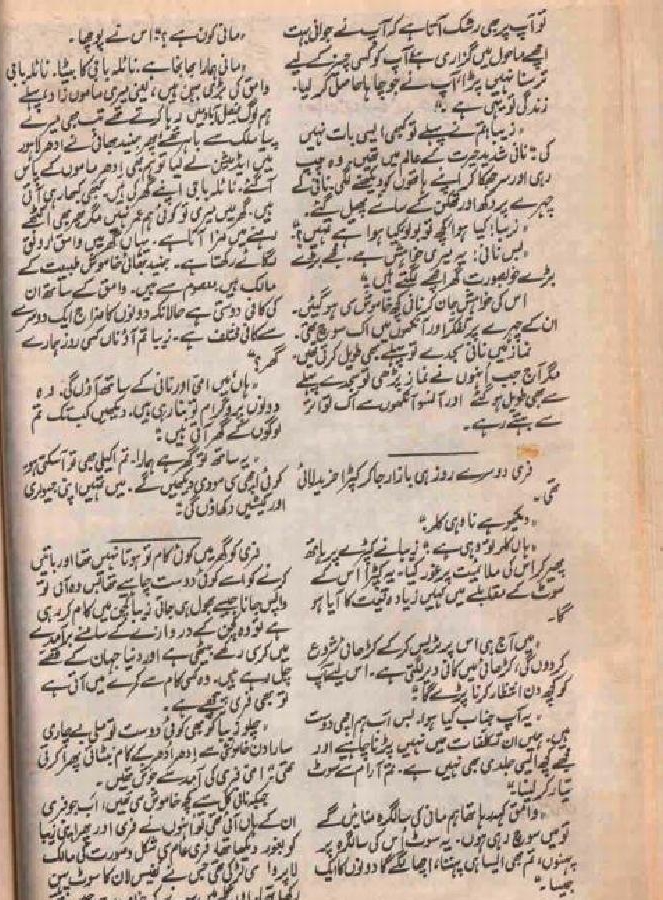 تو آپ پر بھی رشک آتا ہے کہ آپ نے جوانی بہت
اچھے ماحول میں گزاری ہے آپ کو کسی چیز کے لیے
ترسنا نہیں پڑا آپ نے جو چاہا حاصل کر لیا۔
زندگی تو یہی ہے۔"
"زیبا! تم نے پہلے تو کبھی ایسی بات نہیں
کی" نانی شدید حیرت کے عالم میں تھیں پر وہ چپ
رہی اور سر جھکا کر اپنے ہاتھوں کو دیکھنے لگی نانی کے
چہرے پر دکھ اور تھکن کے سائے پھیل گئے۔
"زیبا! کیا ہوا کچھ تو بولو کیا ہوا ہے تمہیں؟"
"بس نانی! یہ میری خواہش ہے۔ مجھے بڑے
بڑے خوبصورت گھر اچھے لگتے ہیں"
اس کی خواہش جان کر نانی کچھ خاموش سی ہو گئیں۔
ان کے چہرے پر تفکر اور آنکھوں میں اک سوچ تھی۔
نماز میں نانی سجدے تو پہلے بھی طویل کرتی تھیں
مگر آج جب انہوں نے نماز پڑھی تو سجدے پہلے
سے بھی طویل ہو گئے اور آنسو آنکھوں سے اک تواتر
سے بہتے رہے۔
فری دوسرے روز ہی بازار جا کر کپڑا خرید لائی
تھی۔
"دیکھو ہے نا وہی کلر"
"ہاں کلر تو وہی ہے" زیبا نے کپڑے پر ہاتھ
پھیر کر اس کی ملائمیت پر غور کیا۔ یہ کپڑا اس کے
سوٹ کے مقابلے میں کہیں زیادہ قیمت کا آیا ہو
گا۔
"میں آج ہی اس پر پریس کر کے کڑھائی شروع
کر دوں گی، کڑھائی میں کافی دیر لگتی ہے۔ اس لیے آپ
کو کچھ دن انتظار کرنا پڑے گا"
"یہ آپ جناب کیا ہوا، بس اب ہم اچھی دوست
ہیں۔ ہمیں ان تکلفات میں نہیں پڑنا چاہیے اور
مجھے کچھ ایسی جلدی بھی نہیں ہے۔ تم آرام سے سوٹ
تیار کر لینا"
"وامق کہہ رہا تھا ہم مانی کی سالگرہ منائیں گے
تو میں سوچ رہی ہوں۔ یہ سوٹ اس کی سالگرہ پر
پہنوں، تم بھی ایسا ہی پہننا، اچھا لگے گا دونوں کا ایک
جیسا۔"
"مانی کون ہے؟" اس نے پوچھا۔
"مانی ہمارا بھانجا ہے۔ نائلہ باجی کا بیٹا۔ نائلہ باجی
وامق کی بڑی بہن ہیں، یعنی میری ماموں زاد، پہلے
ہم لوگ فیصل آباد میں رہا کرتے تھے تب بھی میرے
پپا ملک سے باہر تھے پھر جنید بھائی نے ادھر لاہور
میں ایڈمیشن لے لیا تو ہم بھی ادھر ماموں کے پاس
آ گئے۔ نائلہ باجی اپنے گھر کی ہیں۔ کبھی کبھار ہی آتی
ہیں۔ گھر میں میری تو کوئی ہم عمر نہیں مگر پھر بھی اکٹھے
رہنے میں مزا آتا ہے۔ یہاں گھر میں وامق اور رونق
لگائے رکھتا ہے۔ جنید بھائی خاموش طبیعت کے
مالک ہیں، معصوم سے ہیں۔ وامق کے ساتھ ان
کی کافی دوستی ہے حالانکہ دونوں کا مزاج ایک دوسرے
سے کافی مختلف ہے۔ زیبا تم آؤ ناں کسی روز ہمارے
گھر؟"
"ہاں میں امی اور نانی کے ساتھ آؤں گی۔ وہ
دونوں پروگرام تو بنا رہی ہیں۔ دیکھیں کب تک تم
لوگوں کے گھر آتی ہیں"
"یہ ساتھ تو گھر ہے ہمارا۔ تم اکیلی بھی تو آ سکتی ہو۔
کوئی اچھی سی مووی دیکھیں گے۔ میں تمہیں اپنی جیولری
اور کیسٹیں دکھاؤں گی"
فری کو گھر میں کوئی کام تو ہوتا نہیں تھا اور باتیں
کرنے کو اسے کوئی دوست چاہیے تھا تب وہ آتی تو
واپس جانا جیسے بھول ہی جاتی زیبا کچن میں کام کر رہی
ہے تو وہ کچن کے دروازے کے سامنے برآمدے
میں کرسی رکھے بیٹھی ہے اور دنیا جہان کے قصے
چل رہے ہیں۔ وہ کسی کام سے کمرے میں آتی ہے
تو بھی فری پیچھے ہے۔
"چلو زیبا کو بھی کوئی دوست تو ملی بے چاری
سارا دن خاموشی سے ادھر ادھر کے کام نمٹاتی پھرا کرتی
تھی" امی فری کی آمد سے خوش تھیں۔
جبکہ نانی کل سے کچھ خاموش سی تھیں، اب جو فری
ان کے ہاں آئی تھی تو انہوں نے فری اور پھر اپنی زیبا
کو بغور دیکھا تھا، فری عام سی شکل و صورت کی مالک
لاپروا سی لڑکی تھی جس نے نفیس لان کا سوٹ پہن